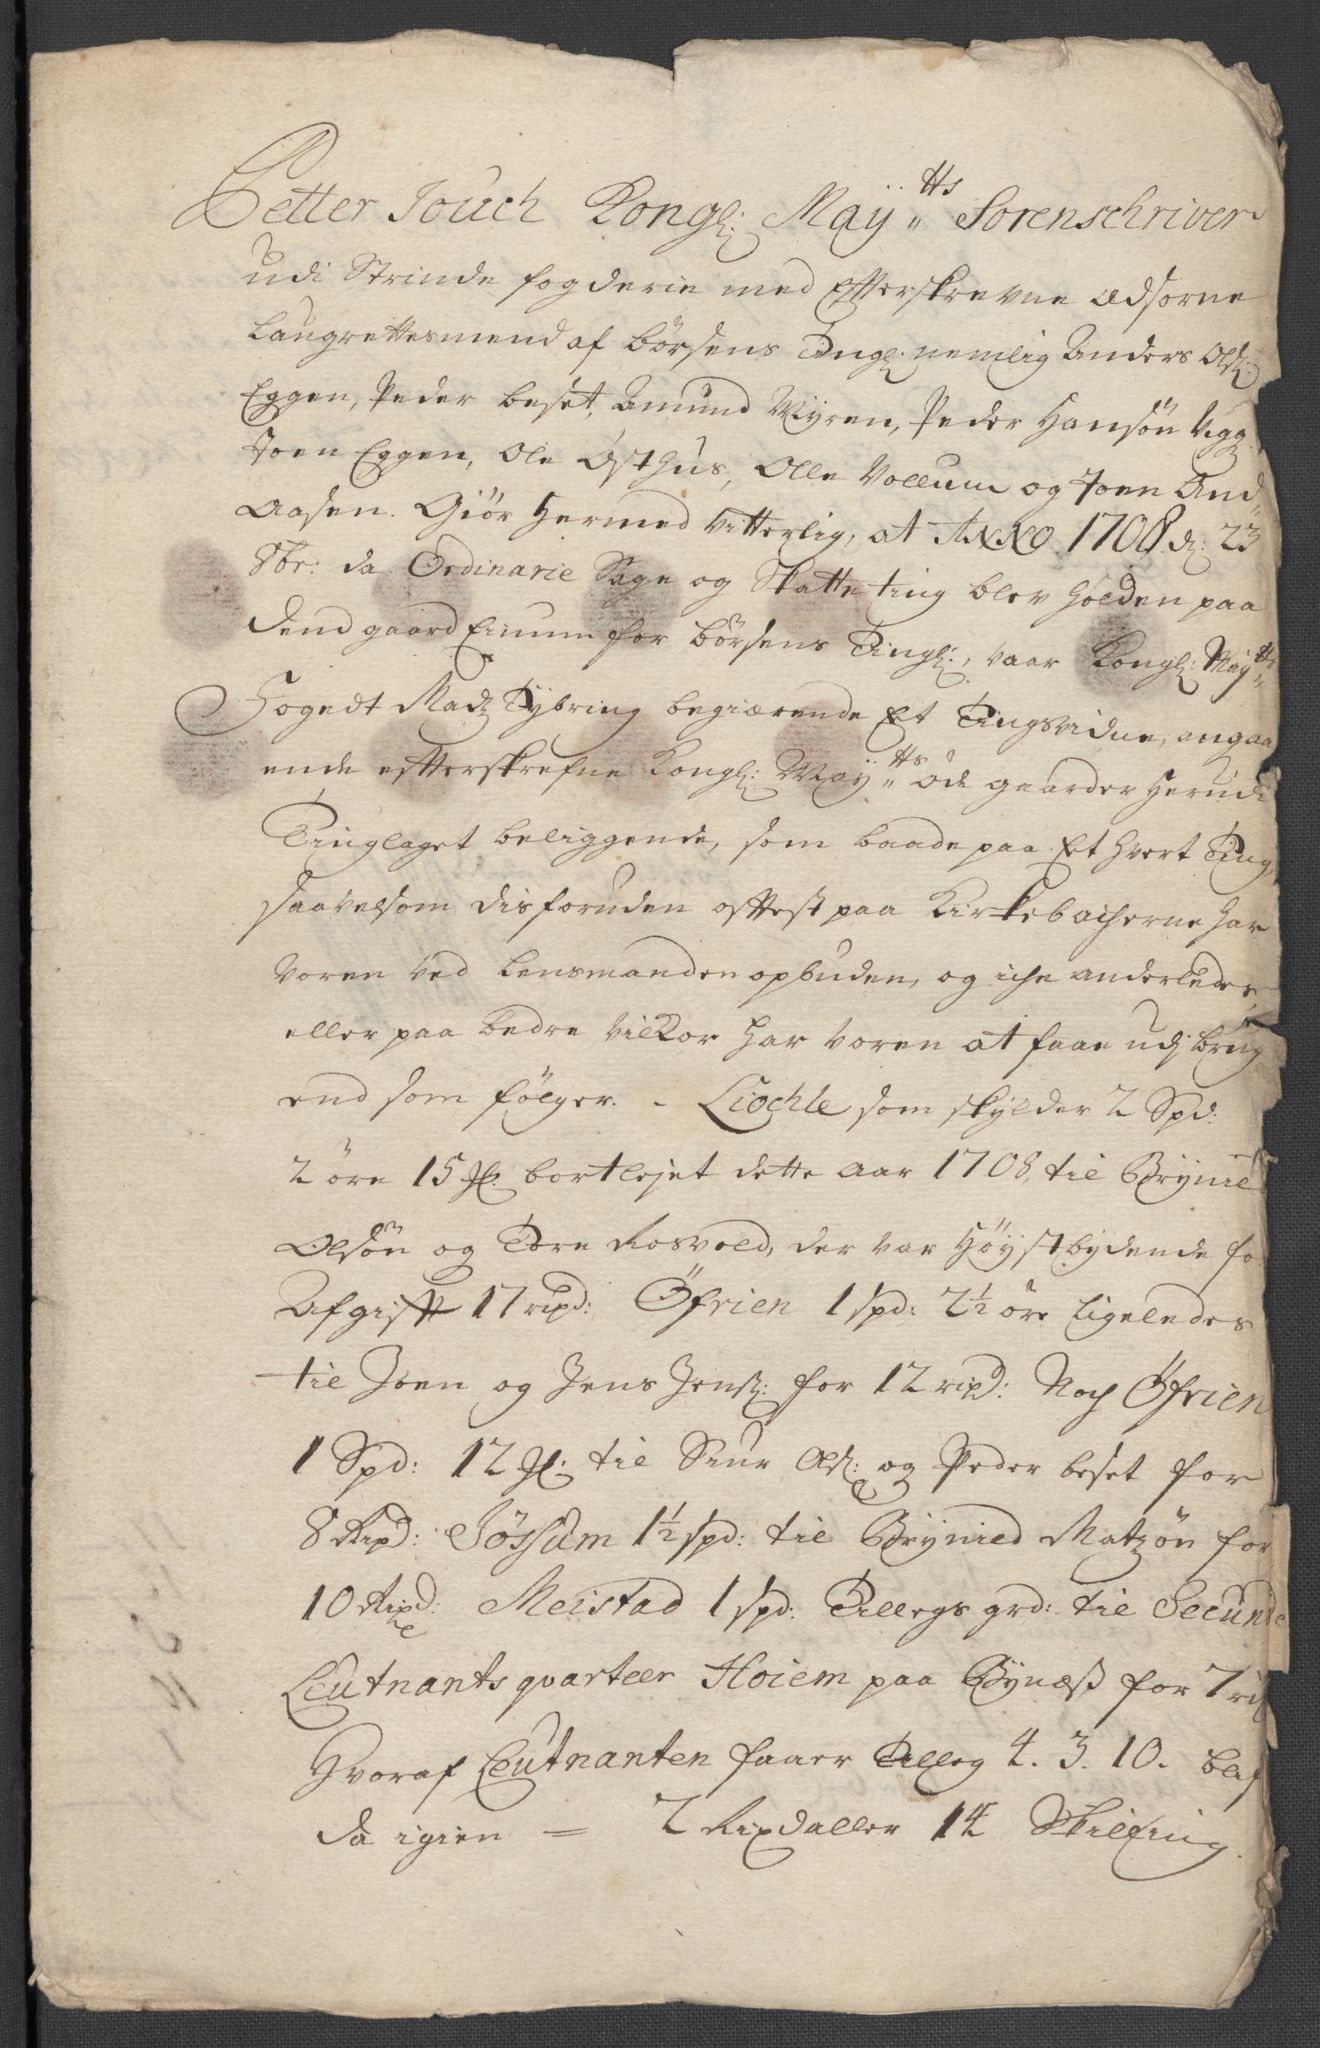 Petter Jouch Kongl: Maÿ:tts Sorenschriver
udi Strinde fogderie med Efterskrevne Edsorne
Laugrettesmend af Börsens Tingl: nemlig Anders Ols:
Eggen, Peder beset, Amund Mÿren, Peder Hansön Vigg
Joen Eggen, Ole Östhus, Olle Vollum og Joen And
Aasen. Giör Hermed Vitterlig, at Anno 1708 d: 23
8br: da Ordinarie Sage og Skatte ting blev holden paa
dend gaard Eimum for börsens Tingl:, vaar Kongl: Maÿ:tts
Fogedt Madtz Tÿbring begiærende Et Tingsvidne, angaa
ende efterskrefne Kongl: Maÿ:tts öde gaarder Herudi
Tinglaget beliggende, som baade paa Et hvert Ting,
saavelsom disforuden oftest paa Kirkebacherne har
voren ved Lensmanden opbuden, og iche anderledes
eller paa bedre vilkor har voren at faae udi brug
end som fölger. - Liochle som skylder 2 Spd:
2 öre 15 Ml: bortlejet dette aar 1708, til Brÿnild
Olsön og Tore Rosvold, der var Höÿstbydende for
Afgift 17 rixd: Öfrien 1 spd: 2½ öre ligeledes
til Joen og Jens Jens: for 12 rixd: Noch Öfrien
1 Spd: 12 Ml: til Siur Ols: og Peder beset for
8 Rixd: Jössum 1½ spd: til Brÿnild Matzön for
10 Rixd: Meistad 1 spd: Tillegs grd: til Secunde
Leutnants qvarteer Hoiem paa Bÿnæss for 7 rix
Hvoraf Leutnanten faaer Tilleg 4. 3. 10. blef
da igien = 2 Rixdaller 14 Skilling.